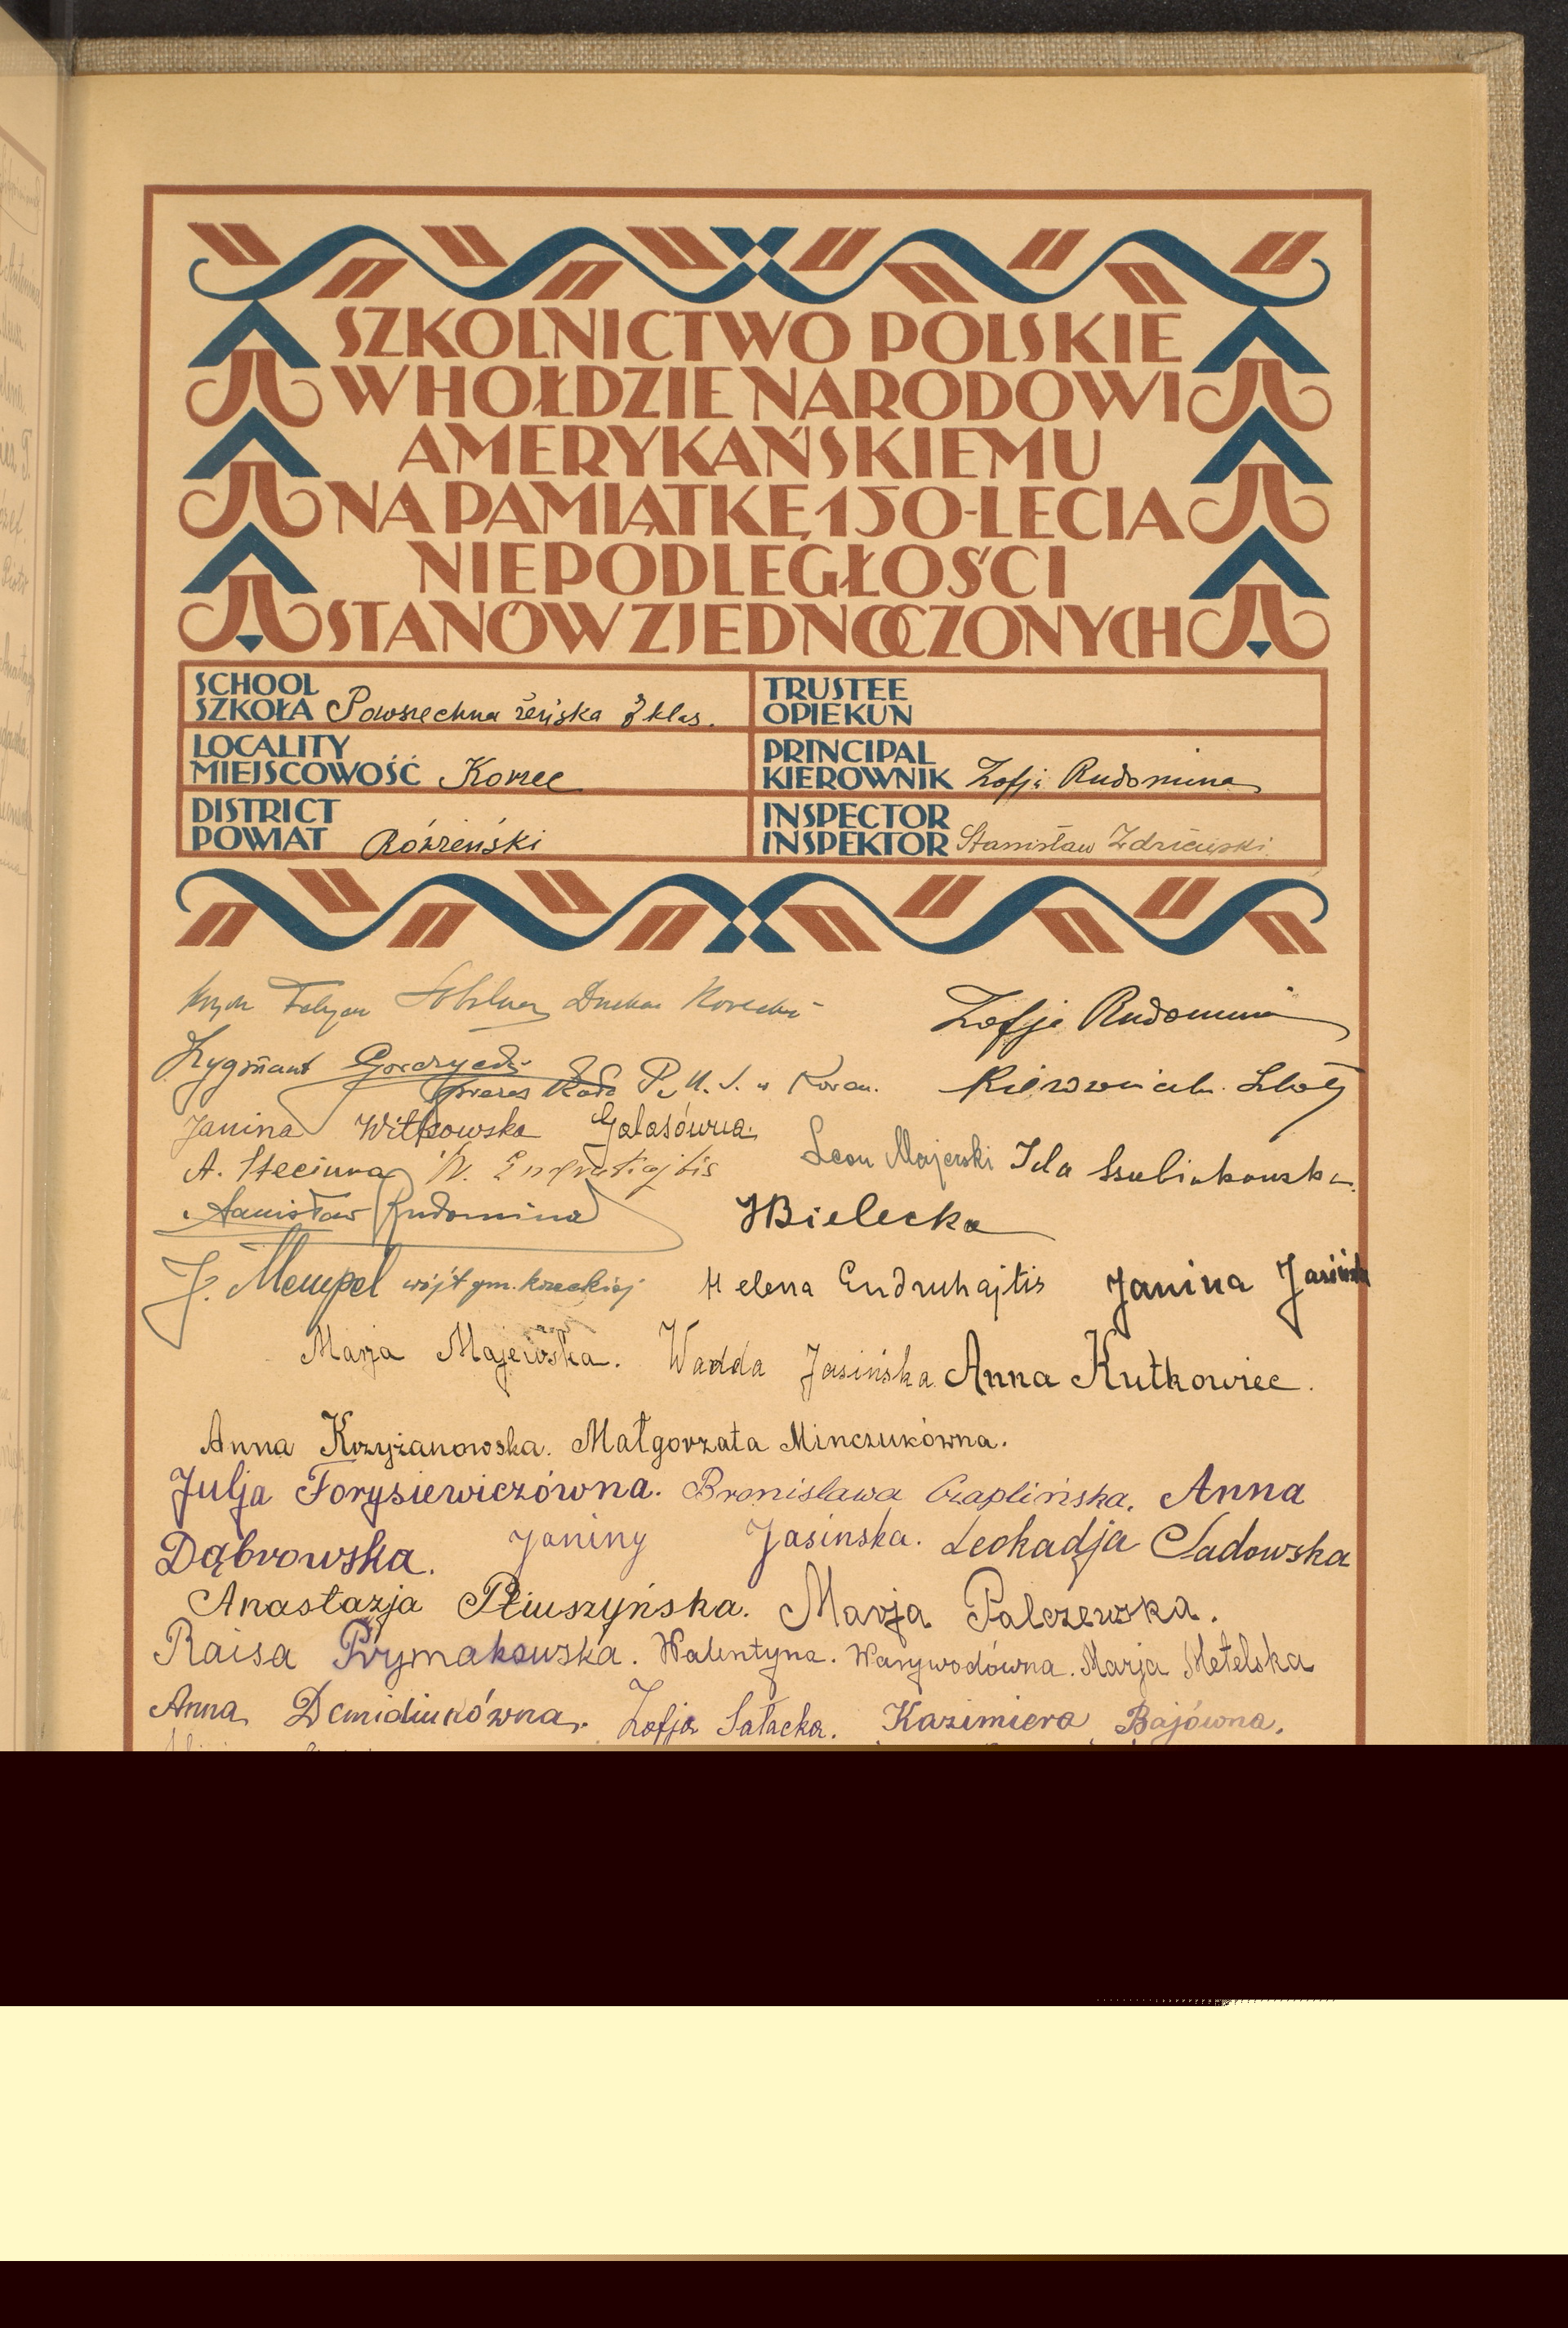 SZKOLNICTWO POLSKIE
W HOŁDZIE NARODOWI
AMERYKAŃSKIEMU
NA PAMIĄTKĘ 150-LECIA
NIEPODLEGŁOŚCI
STANÓW ZJEDNOCZONYCH
SCHOOL
SZKOŁA Powszechna żeńska 7 klas.
TRUSTEE
OPIEKUN
LOCALITY
MIEJSCOWOŚĆ Korzec
PRINCIPAL
KIEROWNIK Zofja Rudomina
DISTRICT
POWIAT Rówieński
INSPECTOR
INSPEKTOR Stanisław
Zofja Rudomina
Zygmunt
Janina Witkowska Galasówna
Leon Majewski Ida
A. Steciuna
Stanisław Rudomina
HBielecka
J. Mempel wójt gm. korzeckiej Helena Endruhajtis Janina Jasińska
Marja Majewska. Wadda Jasińska Anna Kutkowiec.
Anna Krzyżanowska. Małgorzata Minczukówna.
Julja Forysiewiczówna. Bronisława Czaplińska. Anna
Dąbrowska. Janiny Jasinska. Leokadja Sadowska
Anastazja Pliuszyńska. Marja Palczewska.
Raisa Prymakowska. Walentyna. Warywodówna. Marja Metelska
Anna Demidiukówna. Zofja Sałacka. Kazimiera Bajówna.